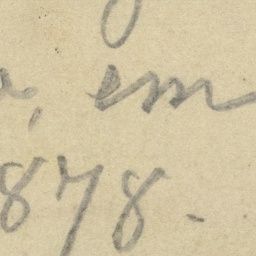 , em
878.